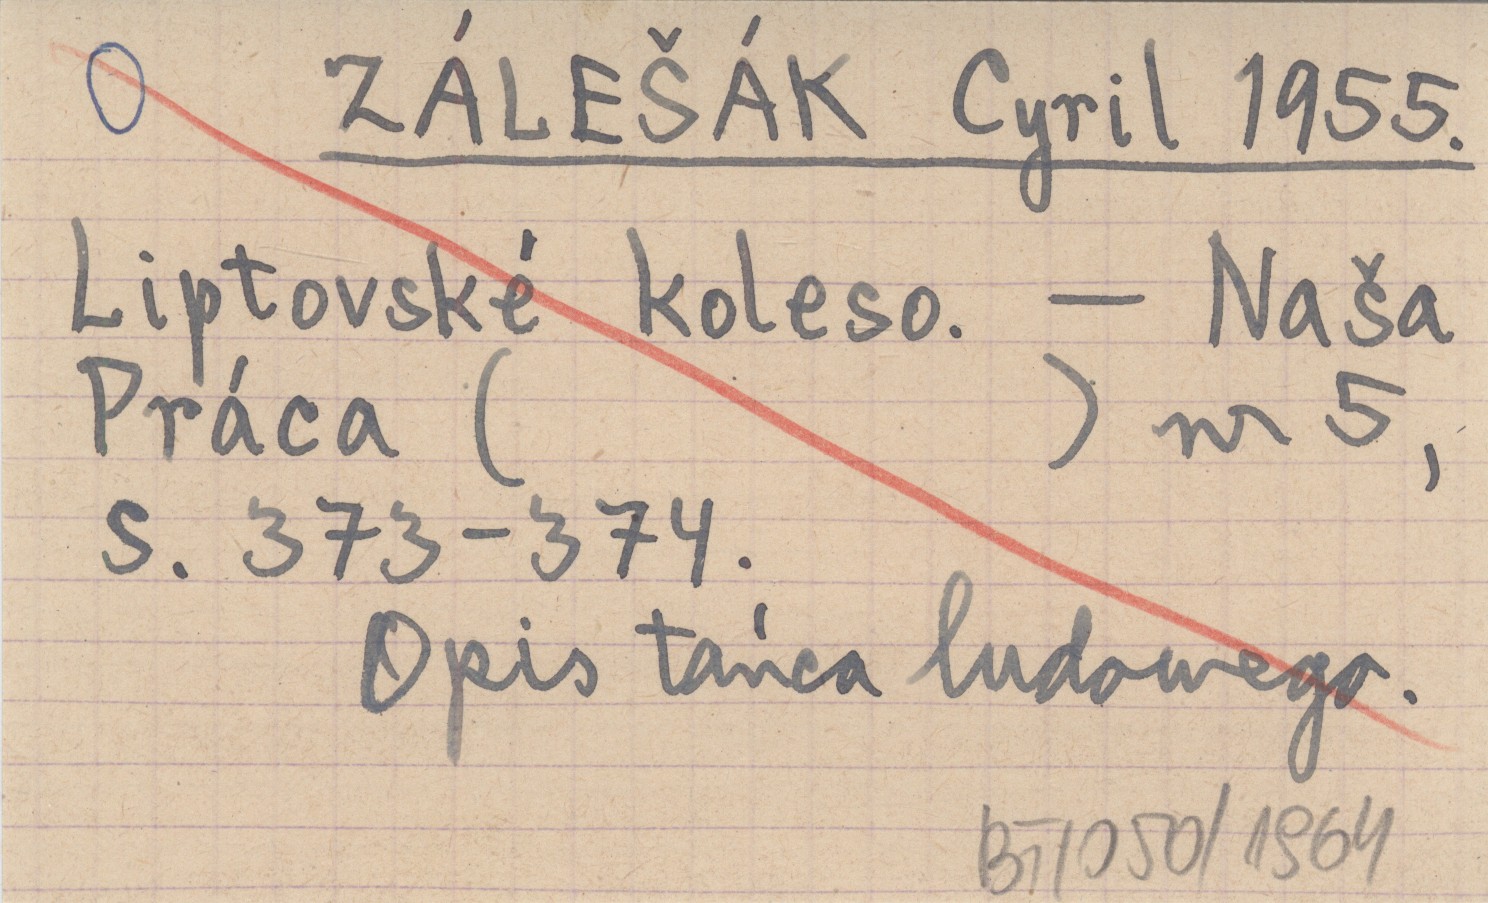 O ZÁLEŠÁK Cyril 1955.
Liptovské koleso. — Naša
Práca ( ) nr 5,
s. 373-374.
Opis tańca ludowego.
1964